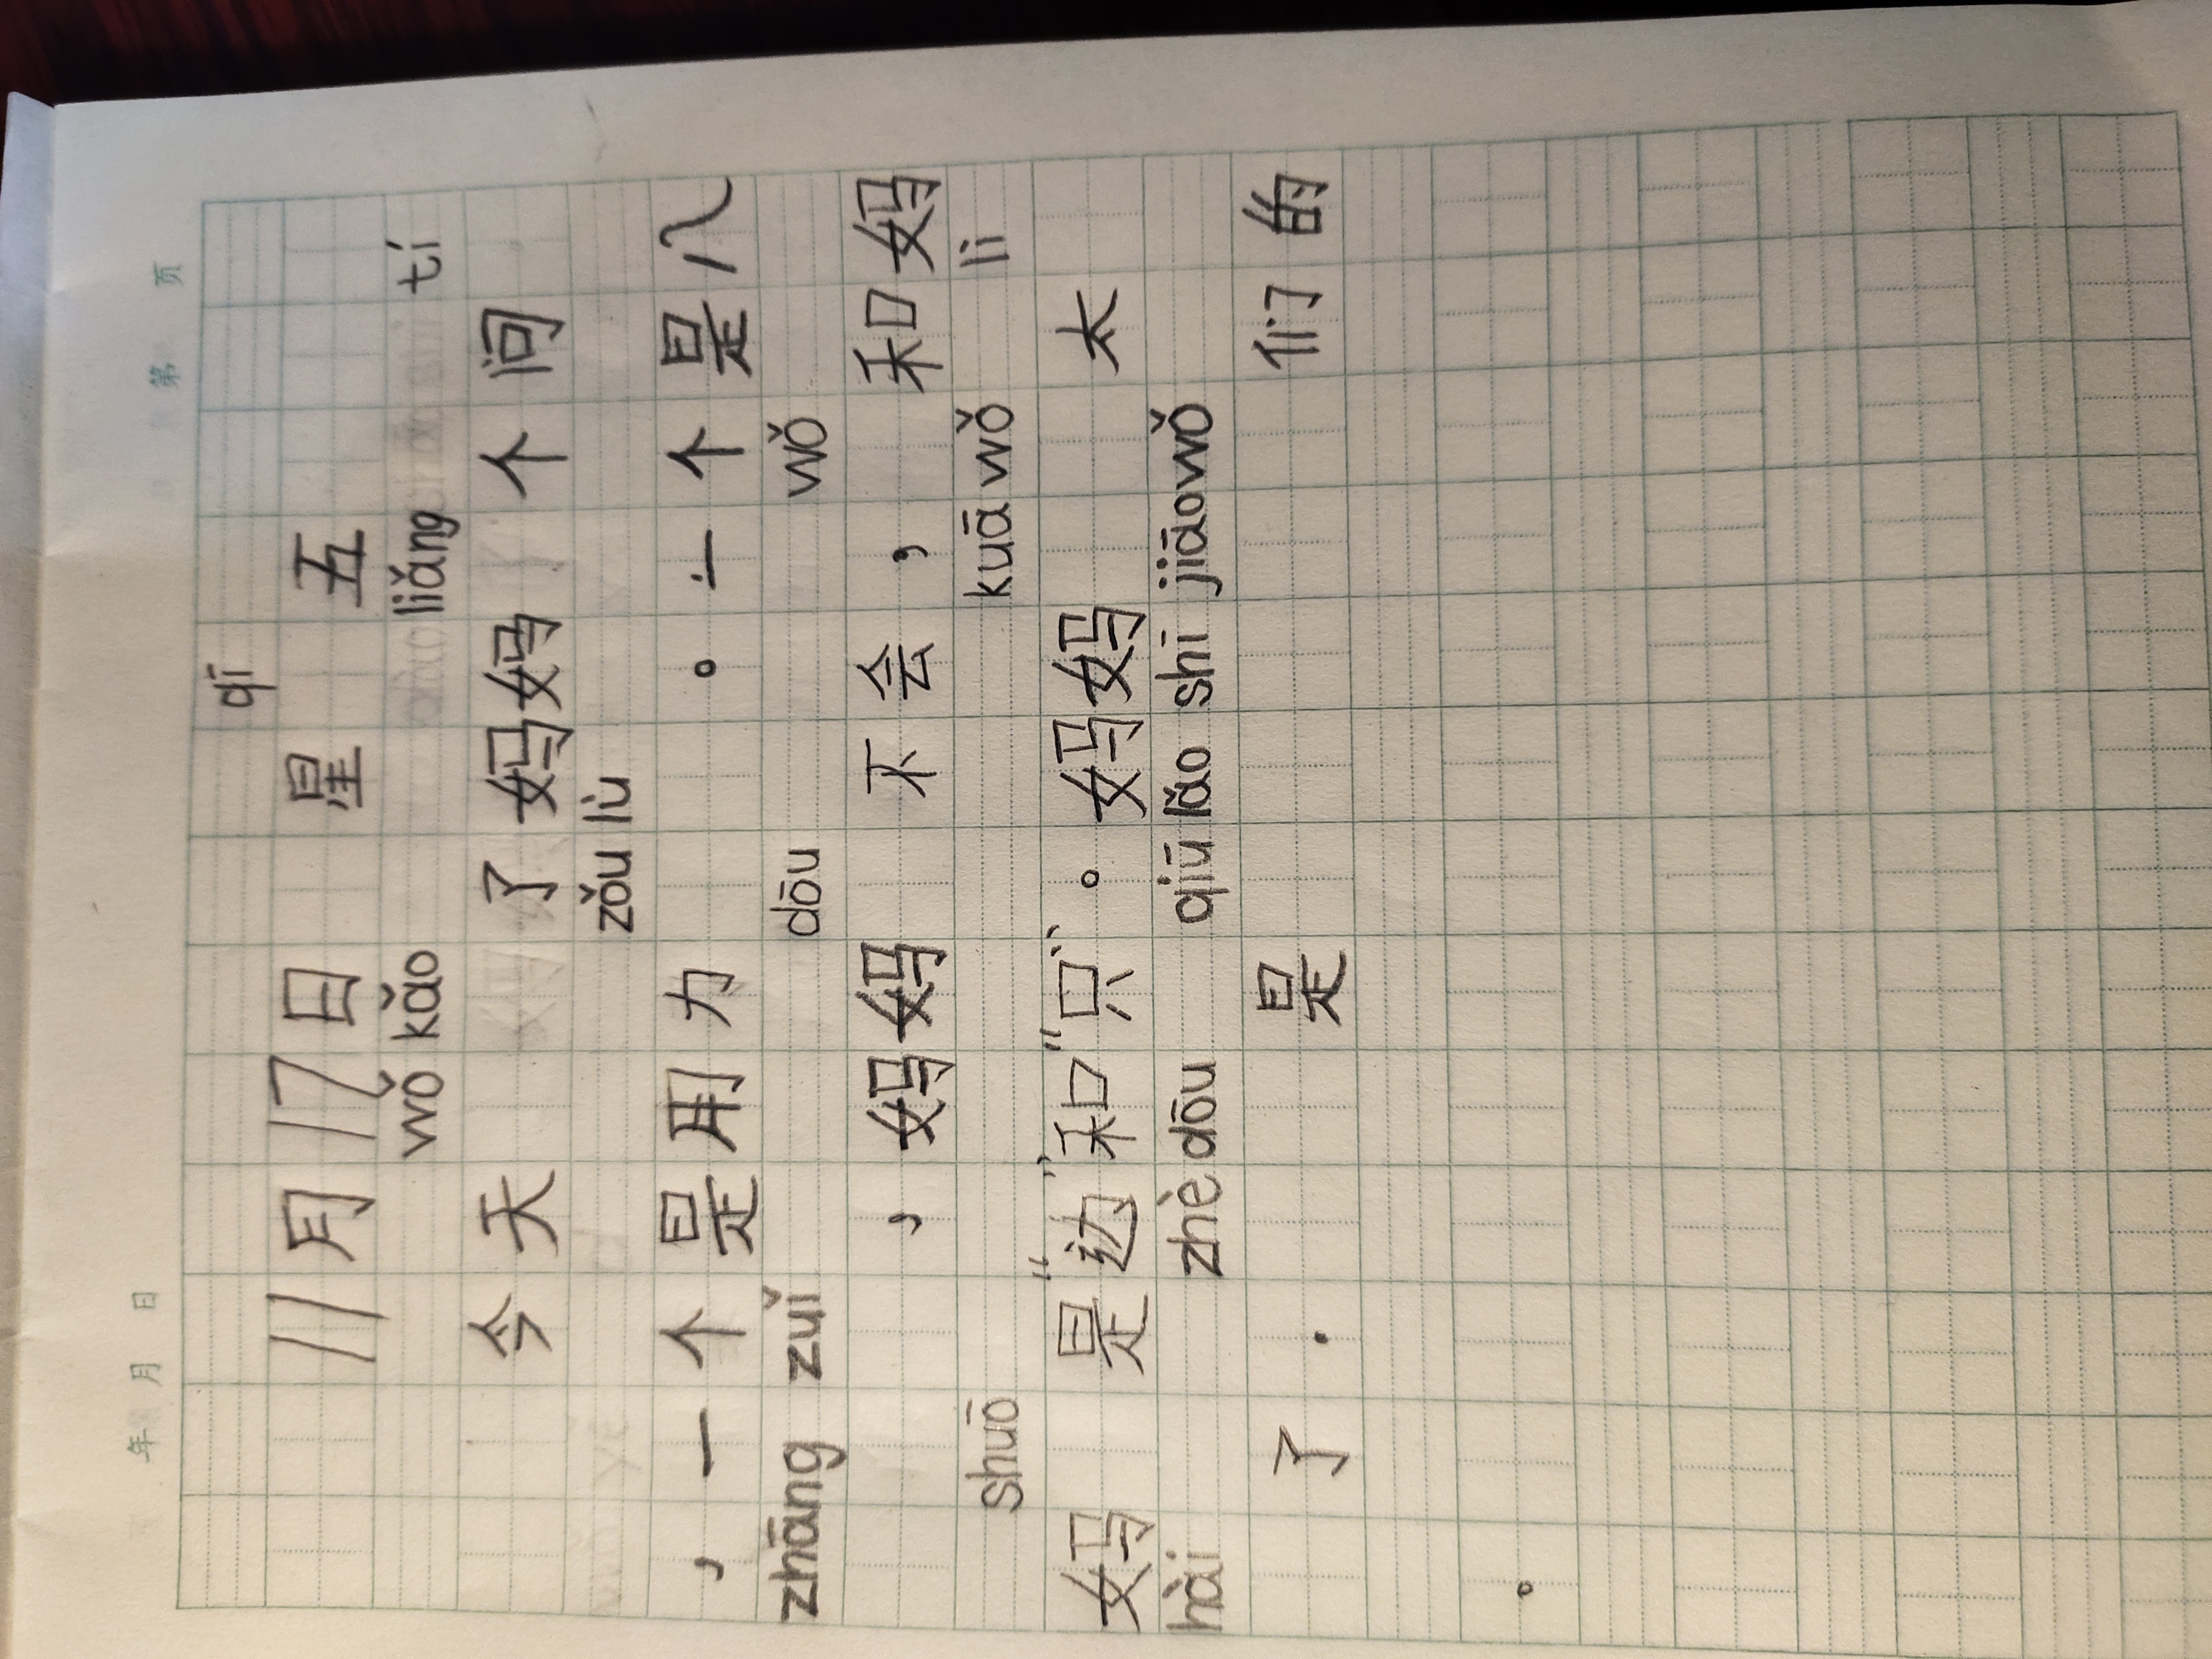 年 月 日 第 页
qī
11月17日 星 五
wǒ kǎo liǎng tí
今天 了妈妈 个问
zǒu lù
，一个是用力 。一个是八
zhāng zuǐ dōu wǒ
，妈妈 不会，和妈
shuō kuā wǒ li
妈 是“边”和“只”。妈妈 太
hài zhè dōu qiū lǎo shī jiāo wǒ
了. 是 们的
。